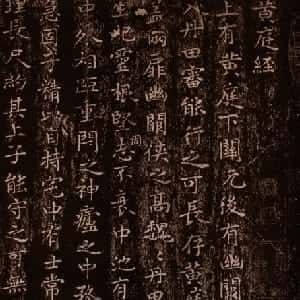 黄庭經
上有黄庭下關元後有幽闕
入丹田審能行之可長存黄庭
兩扉幽關俠之高魏魏丹田
生肥靈根堅志不衰中池有
中外相距重閉之神廬之中務
急固子精以自持宅中有士常
理長尺約其上子能守之可無